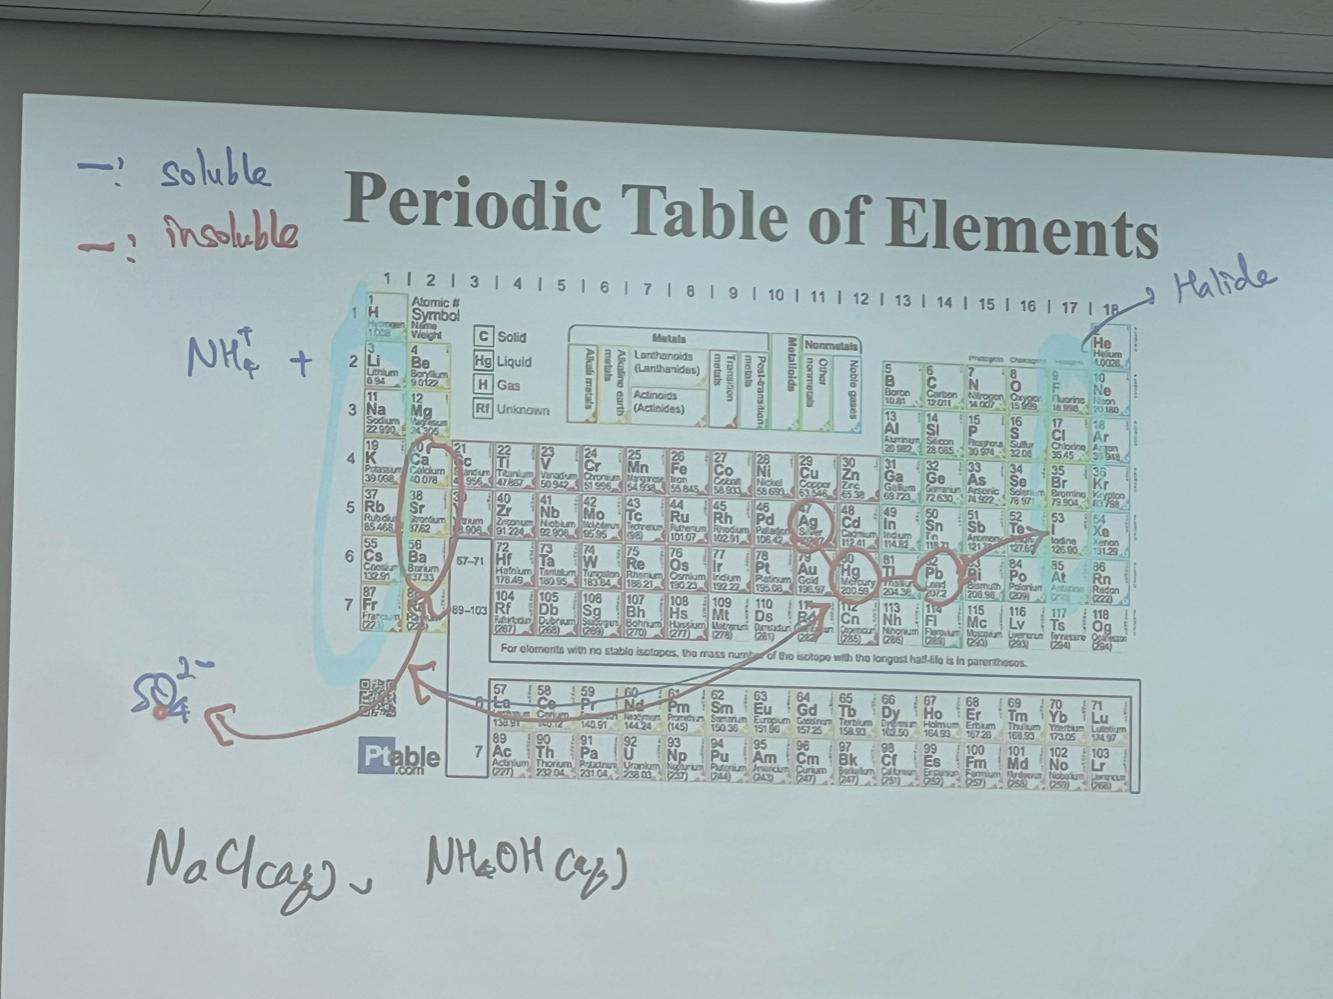 —: soluble
—: insoluble
Periodic Table of Elements
Halide
1 | 2 | 3 | 4 | 5 | 6 | 7 | 8 | 9 | 10 | 11 | 12 | 13 | 14 | 15 | 16 | 17 | 18
NH₄⁺ +
Atomic #
Symbol
Name
Weight
C Solid
Hg Liquid
H Gas
Rf Unknown
Metals
Nonmetals
Alkali metals
Alkaline earth metals
Lanthanoids (Lanthanides)
Actinoids (Actinides)
Transition metals
Post-transition metals
Metalloids
Other nonmetals
Noble gases
1 1 H 2 He Helium 4.0026
2 3 Li Lithium 6.94 4 Be Beryllium 9.0122 5 B Boron 10.81 6 C Carbon 12.011 7 N Nitrogen 14.007 8 O Oxygen 15.999 9 F Fluorine 18.998 10 Ne Neon 20.180
3 11 Na Sodium 22.990 12 Mg Magnesium 24.305 13 Al Aluminium 26.982 14 Si Silicon 28.085 15 P Phosphorus 30.974 16 S Sulfur 32.06 17 Cl Chlorine 35.45 18 Ar Argon
4 19 K Potassium 39.098 20 Ca Calcium 40.078 21 Sc 22 Ti Titanium 47.867 23 V Vanadium 50.942 24 Cr Chromium 51.996 25 Mn Manganese 54.938 26 Fe Iron 55.845 27 Co Cobalt 58.933 28 Ni Nickel 58.693 29 Cu Copper 63.546 30 Zn Zinc 65.38 31 Ga Gallium 69.723 32 Ge Germanium 72.630 33 As Arsenic 74.922 34 Se Selenium 78.971 35 Br Bromine 79.904 36 Kr Krypton 83.798
5 37 Rb Rubidium 85.468 38 Sr Strontium 87.62 40 Zr Zirconium 91.224 41 Nb Niobium 92.906 42 Mo 95.95 43 Tc Technetium (98) 44 Ru Ruthenium 101.07 45 Rh Rhodium 102.91 46 Pd Palladium 106.42 47 Ag Silver 48 Cd Cadmium 112.41 49 In Indium 114.82 50 Sn Tin 118.71 51 Sb 52 Te 127.60 53 I Iodine 126.90 54 Xe Xenon 131.29
6 55 Cs Caesium 132.91 56 Ba Barium 137.33 57–71 72 Hf Hafnium 178.49 73 Ta Tantalum 180.95 74 W Tungsten 183.84 75 Re Rhenium 186.21 76 Os Osmium 190.23 77 Ir Iridium 192.22 78 Pt Platinum 195.08 79 Au Gold 196.97 80 Hg Mercury 200.59 81 Tl 204.38 82 Pb Lead 207.2 Bi Bismuth 208.98 84 Po Polonium (209) 85 At 86 Rn Radon (222)
7 87 Fr Francium (223) 89–103 104 Rf (267) 105 Db Dubnium (268) 106 Sg (269) 107 Bh Bohrium (270) 108 Hs Hassium (277) 109 Mt (278) 110 Ds (281) 112 Cn (285) 113 Nh Nihonium (286) 114 Fl Flerovium (289) 115 Mc (290) 116 Lv (293) 117 Ts (294) 118 Og (294)
For elements with no stable isotopes, the mass number of the isotope with the longest half-life is in parentheses.
SO₄²⁻
6 57 La 58 Ce 59 Pr 60 Nd 61 Pm (145) 62 Sm 150.36 63 Eu 151.96 64 Gd 157.25 65 Tb 158.93 66 Dy 162.50 67 Ho 164.93 68 Er 167.26 69 Tm 168.93 70 Yb 173.05 71 Lu 174.97
7 89 Ac Actinium (227) 90 Th Thorium 232.04 91 Pa 231.04 92 U Uranium 238.03 93 Np (237) 94 Pu Plutonium (244) 95 Am (243) 96 Cm (247) 97 Bk (247) 98 Cf (251) 99 Es (252) 100 Fm (257) 101 Md (258) 102 No (259) 103 Lr (266)
Ptable
.com
NaCl(aq)、 NH₄OH(aq)